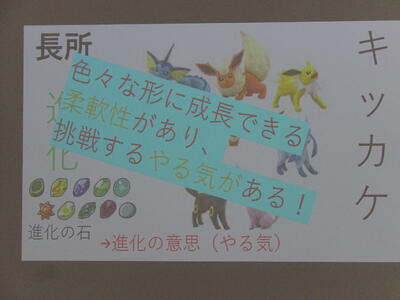 長所
キッカケ
色々な形に成長できる
柔軟性があり、
挑戦するやる気がある！
進化
進化の石
→進化の意思（やる気）